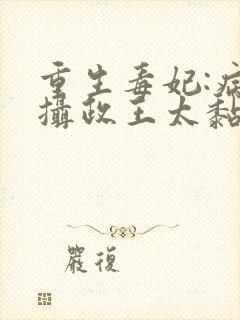 重生毒妃:病
攝政王太黏
嚴復